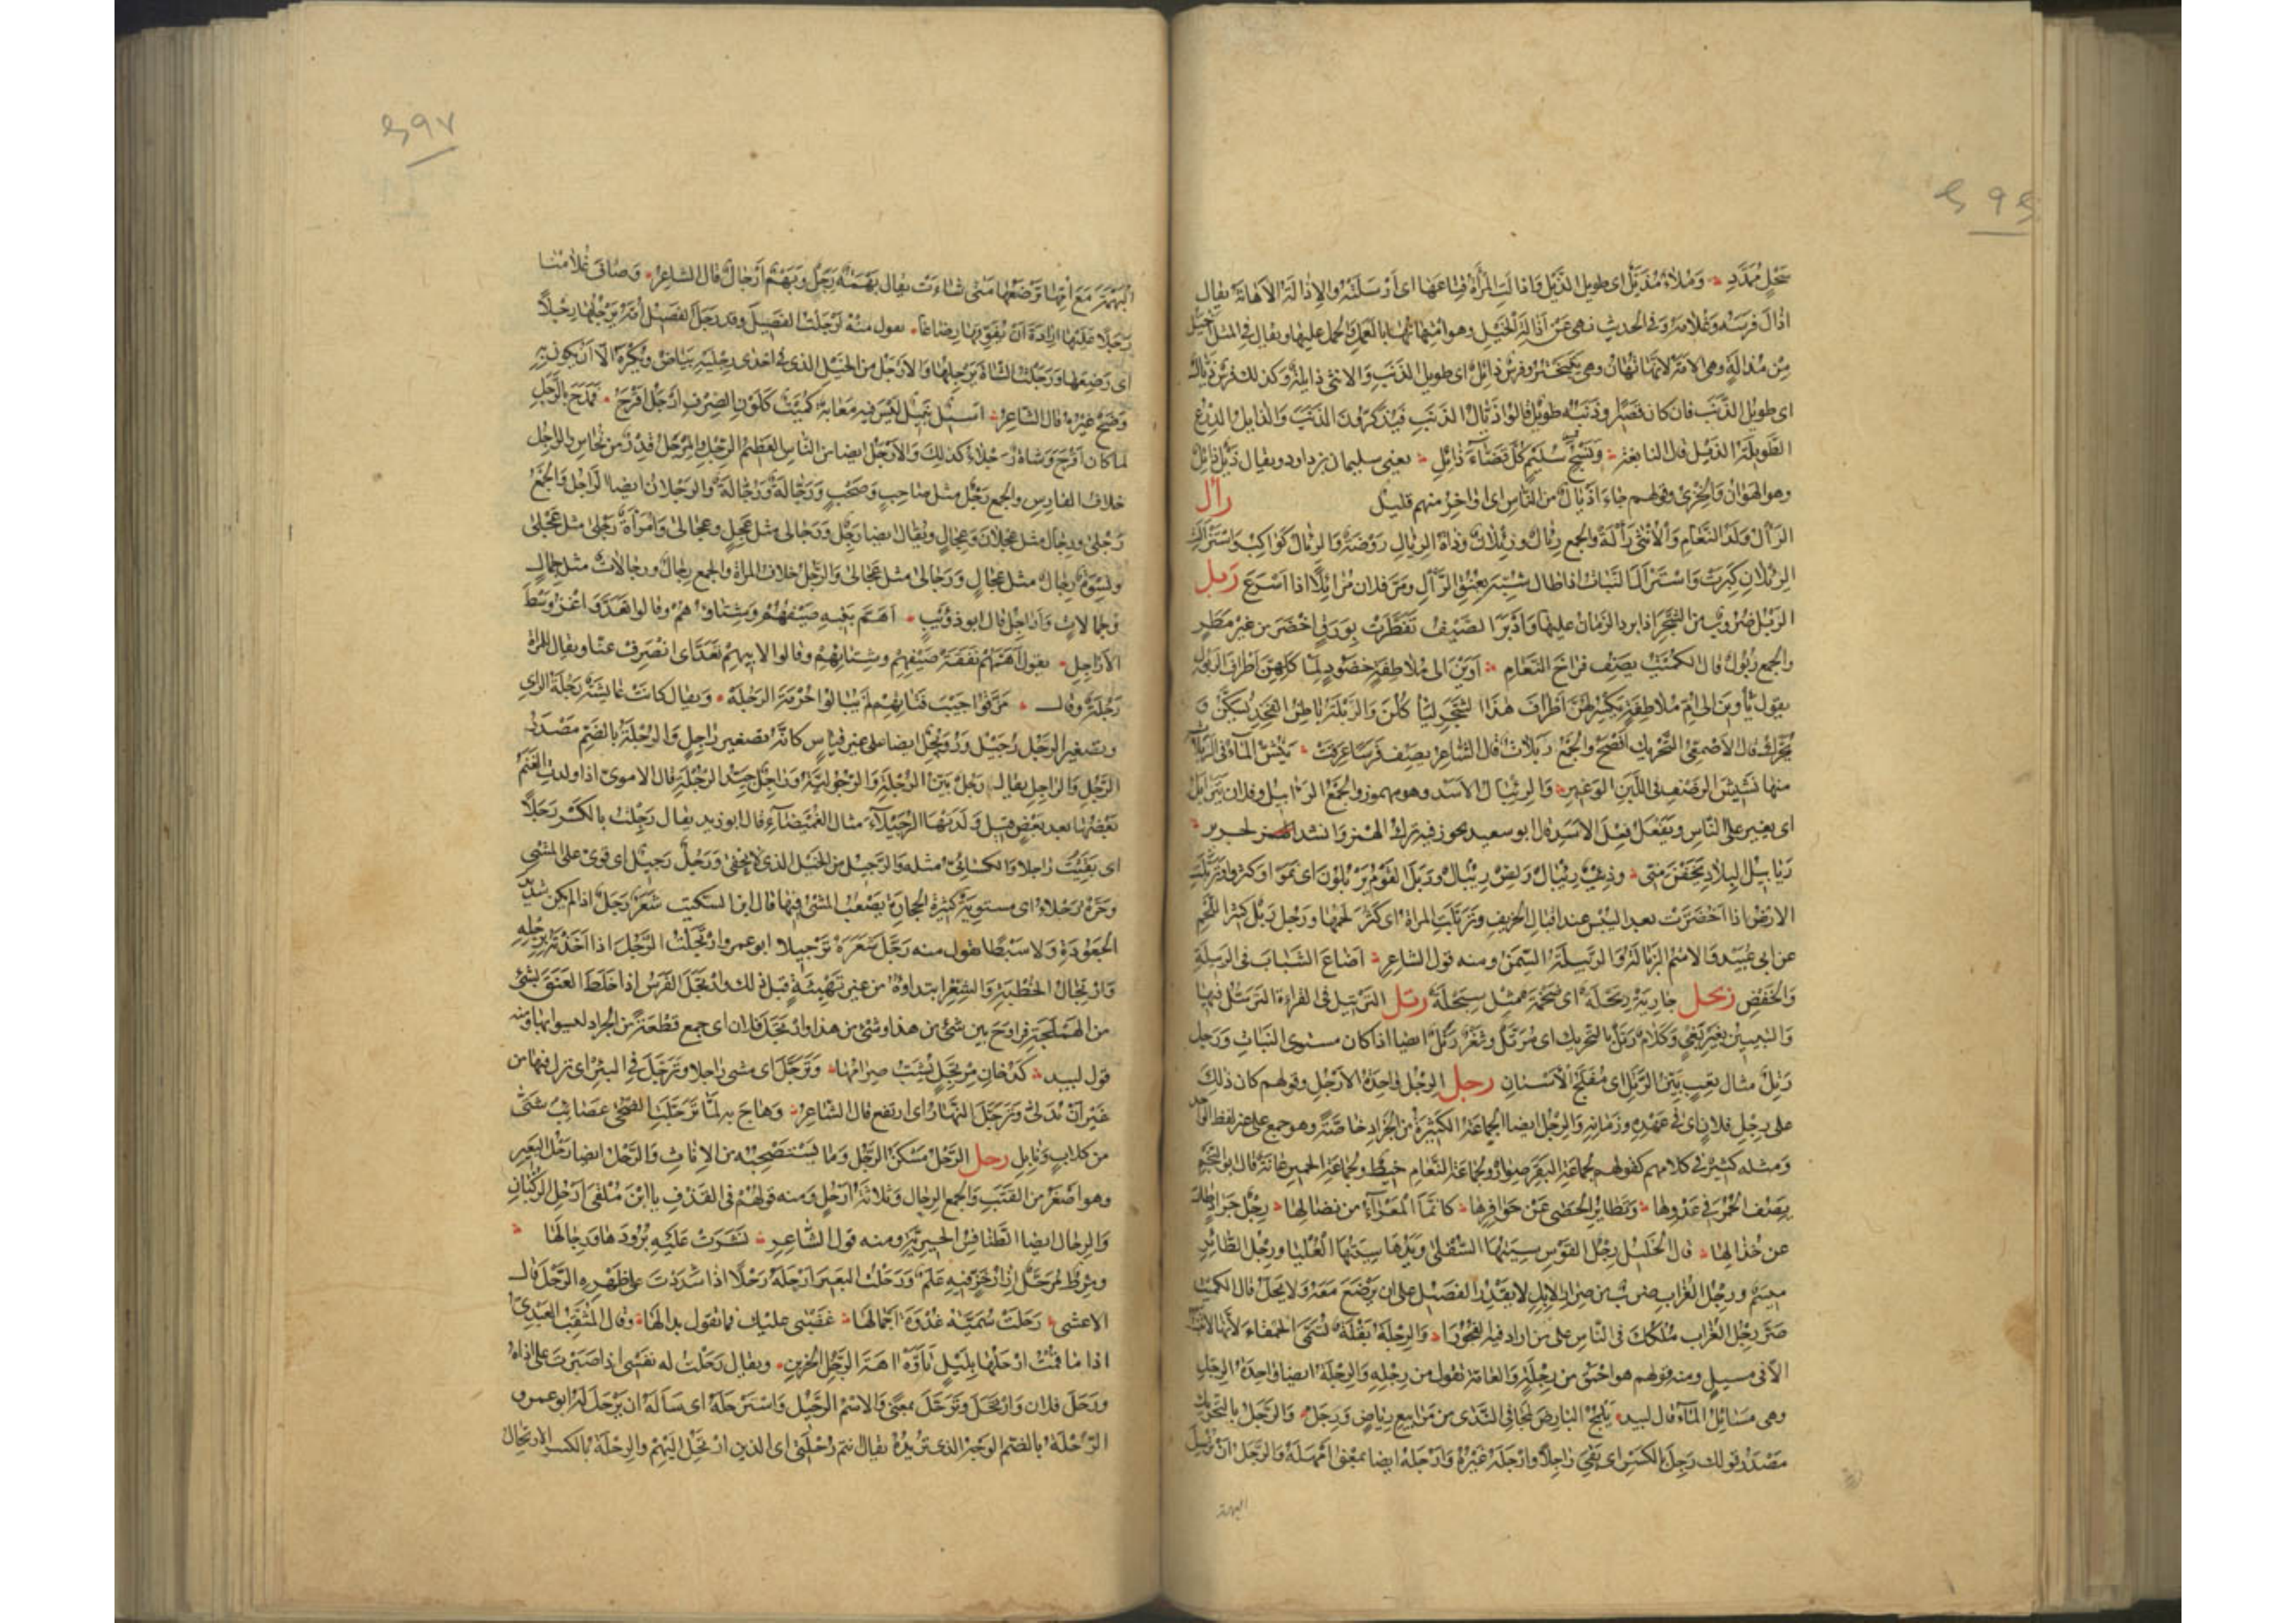 سَحْلٍ مُمَدَّدِ وَمُلَاءٌ مُذَيَّلٌ اى طويل الذَّيْل وَاذالت المرأة قناعها اى اَرْسَلَتْهُ والاِذالَةُ الاهانةُ يقال
اذال فَرَسَه وغلامَهُ وفى الحديث نهى عن اذالة الخيل وهو امتهانها بالعمل والحمل عليها ويقال فى المثل اَخْيَلُ
مِنْ مُذالَةٍ وهى الامة لانها تُهان وهى تَتَبَخْتَرُ وفرسٌ ذائلٌ اى طويل الذنب والانثى ذائلة وكذلك فرس ذَيّالٌ
اى طويل الذَّنَب فان كان قصيرا وذنبه طويل قالوا ذَيّال الذنب فيذكرون الذنب والذايل الدرع
الطويلة الذيل قال النابغة وَنَسْجُ سُلَيْمٍ كُلَّ قَضّاءَ ذائِلِ يعنى سليمان بن داود ويقال ذَيْل ذائل
وهو الهوان والخزى وقولهم جاء اذيال من الناس اى اواخر منهم قليل رأل
الرَأْل وَلَد النَّعَام والاُنثى رَأْلة والجمع رئال ورئلان وذاة الرئال رَوضة والرئال كواكب واسترألت
الرئلان كبرت واسترأل النبات اذا طال شبه بعنق الرأل ومرّ فلان مُرائلا اذا اسرع ربل
الرَبْل ضروب من الشجر اذا برد الزمان عليها وادبر الصيف تفطرت بورق اخضر من غير مطر
والجمع ربول قال الكميت يصف فراخ النعام اَوَيْنَ الى مُلاطِفَةٍ خَضُودٍ لِمَأْكَلِهِنَّ اَطْرافَ الرُّبُولِ
يقول يأوين الى ام ملاطفة تكسر لهن اطراف هذا الشجر ليأكلن والربلة باطن الفخذ يسكن و
يحرك قال الاصمعى التحريك افصح والجمع ربلات قال الشاعر يصف فرسا عرقت يَنِشُّ الماءُ فى الرَّبَلاتِ
منها نَشيشَ الرَّضْفِ فى اللَّبَنِ الوَغيرِ والرئبال الاسد وهو مهموز والجمع الرآبيل وفلان يترأبل
اى يغير على الناس ويفعل فعل الاسد قال ابو سعيد يجوز فيه ترك الهمز وانشد لجرير
رَيابيلَ البِلادِ يَخَفْنَ مِنّى وذئب رئبال ولص رئبال وربل القوم يربلون اى نموا وكثروا وتربلت
الارض اذا اخضرت بعد اليبس عند اقبال الخريف وتربلت المراة اى كثر لحمها ورجل ربل كثير اللحم
عن ابى عبيد والاسم الربالة والربيلة السمن ومنه قول الشاعر اَضاعَ الشَّبابَ فى الرَّبيلَةِ
والخَفْضِ ربحل جارية ربحلة اى ضخمة مثل سبحلة رتل الترتيل فى القراءة الترسل فيها
والتبيين بغير بغى وكلام رتل بالتحريك اى مرتل وثغر رتل ايضا اذا كان مستوى النبات ورجل
رتل مثال تعب بيّن الرتل اى مفلج الاسنان رجل الرجل واحدة الارجل وقولهم كان ذلك
على رجل فلان اى فى عهده وزمانه والرجل ايضا الجماعة الكثيرة من الجراد خاصة وهو جمع على غير لفظ الواحد
ومثله كثير فى كلامهم كقولهم لجماعة البقر صوار ولجماعة النعام خيط ولجماعة الحمير عانة قال ابو النجم
يصف الحمر فى عدوها وتطاير الحصى عن حوافرها كأنما المعزاء من نضالها رجل جراد طار
عن خذالها قال الخليل رجل القوس سيتها السفلى ويدها سيتها العليا ورجل الطائر
ميسم ورجل الغراب ضرب من صر الابل لا يقدر الفصيل على ان يرضع معه ولا ينحل قال الكميت
صر رجل الغراب ملكك فى الناس على من اراد فيه الفجورا والرجلة بقلة تسمى الحمقاء لانها لا تنبت
الا فى مسيل ومنه قولهم هو احمق من رجلة والعامة تقول من رجله والرجلة ايضا واحدة الرجل
وهى مسائل الماء قال لبيد يلمج البارض لمجا فى الندى من مرابيع رياض ورجل والرجل بالتحريك
مصدر قولك رجل بالكسر اى بقى راجلا وارجله غيره وارجله ايضا بمعنى امهله والرجل ان ترسل
البهمة
البهمة مع امها ترضعها متى شاءت يقال بهمة رجل وبهم ارجال قال الشاعر وصاف غلامنا
رجلا عليها ارادة ان يفوقها رضاعا تقول منه ارجلت الفصيل وقد رجل الفصيل امه يرجلها رجلا
اى رضعها ورجلت الشاة برجلها والارجل من الخيل الذى فى احدى رجليه بياض ويكره الا ان يكون به
وضح غيره قال الشاعر اسيل نبيل ليس فيه معابة كميت كلون الصرف ارجل اقرح فمدح بالرجل
لما كان اقرح وشاة رجلاء كذلك والارجل ايضا من الناس العظيم الرجل والمرجل قدر من نحاس والراجل
خلاف الفارس والجمع رجل مثل صاحب وصحب ورجالة ورجالة والرجلان ايضا الراجل والجمع
رجلى ورجال مثل عجلان وعجال ويقال ايضا رجل ورجالى مثل عجل وعجالى وامرأة رجلى مثل عجلى
ونسوة رجال مثل عجال ورجالى مثل عجالى والرجل خلاف المراة والجمع رجال ورجالات مثل جمال
وجمالات واراجل قال ابو ذؤيب اهم بنيه صيفهم وشتاؤهم وقالوا تعد واغز وسط
الاراجل يقول اهمتهم نفقة صيفهم وشتائهم وقالوا لابيهم تعد اى انصرف عنا ويقال للمراة
رجلة وقال مزقوا جيب فتاتهم لم يبالوا حرمة الرجلة ويقال كانت عايشة رجلة الراى
وتصغير الرجل رجيل ورويجل ايضا على غير قياس كانه تصغير راجل والرجلة بالضم مصدر
الرجل والراجل يقال رجل بين الرجلة والرجولية وراجل جيد الرجلة قال الاموى اذا ولدت الغنم
بعضها بعد بعض قيل ولدتها الرجيلاء مثال الغميضاء قال ابو زيد يقال رجلت بالكسر رجلا
اى بقيت راجلا والكسائى مثله والرجيل من الخيل الذى لا يحفى ورجل رجيل اى قوى على المشى
وحرة رجلاء اى مستوية كثيرة الحجارة يصعب المشى فيها قال ابن السكيت شعر رجل اذا لم يكن شديد
الجعودة ولا سبطا تقول منه رجل شعره ترجيلا ابو عمرو ارتجلت الرجل اذا اخذته برجله
وارتجال الخطبة والشعر ابتداؤه من غير تهيئة قبل ذلك وارتجل الفرس اذا خلط العنق بشئ
من الهملجة فراوح بين شئ من هذا وشئ من هذا وارتجل فلان اى جمع قطعة من الجراد ليشويها ومنه
قول لبيد كدخان مرتجل يشب ضرامها وترجل اى مشى راجلا وترجل فى البئر اى نزل فيها من
غير ان يدلى وترجل النهار اى ارتفع قال الشاعر وهاج به لما ترجلت الضحى عصائب شتى
من كلاب ونابل رحل الرحل مسكن الرجل وما يستصحبه من الاثاث والرحل ايضا رحل البعير
وهو اصغر من القتب والجمع الرحال وثلاثة ارحل ومنه قولهم فى القذف يا ابن ملقى ارحل الركبان
والرحال ايضا الطنافس الحيرية ومنه قول الشاعر نشرت عليه برودها ورحالها
ومرط مرحل ازار خز فيه علم ورحلت البعير ارحله رحلا اذا شددت على ظهره الرحل قال
الاعشى رحلت سمية غدوة اجمالها غضبى عليك فما تقول بدالها وقال المثقب العبدى
اذا ما قمت ارحلها بليل تأوه اهة الرجل الحزين ويقال رحلت له نفسى اذا صبرت على اذاه
ورحل فلان وارتحل وترحل بمعنى والاسم الرحيل واسترحله اى سأله ان يرحل له ابو عمرو
الرحلة بالضم الوجه الذى تريده يقال انتم رحلتى اى الذين ارتحل اليهم والرحلة بالكسر الارتحال